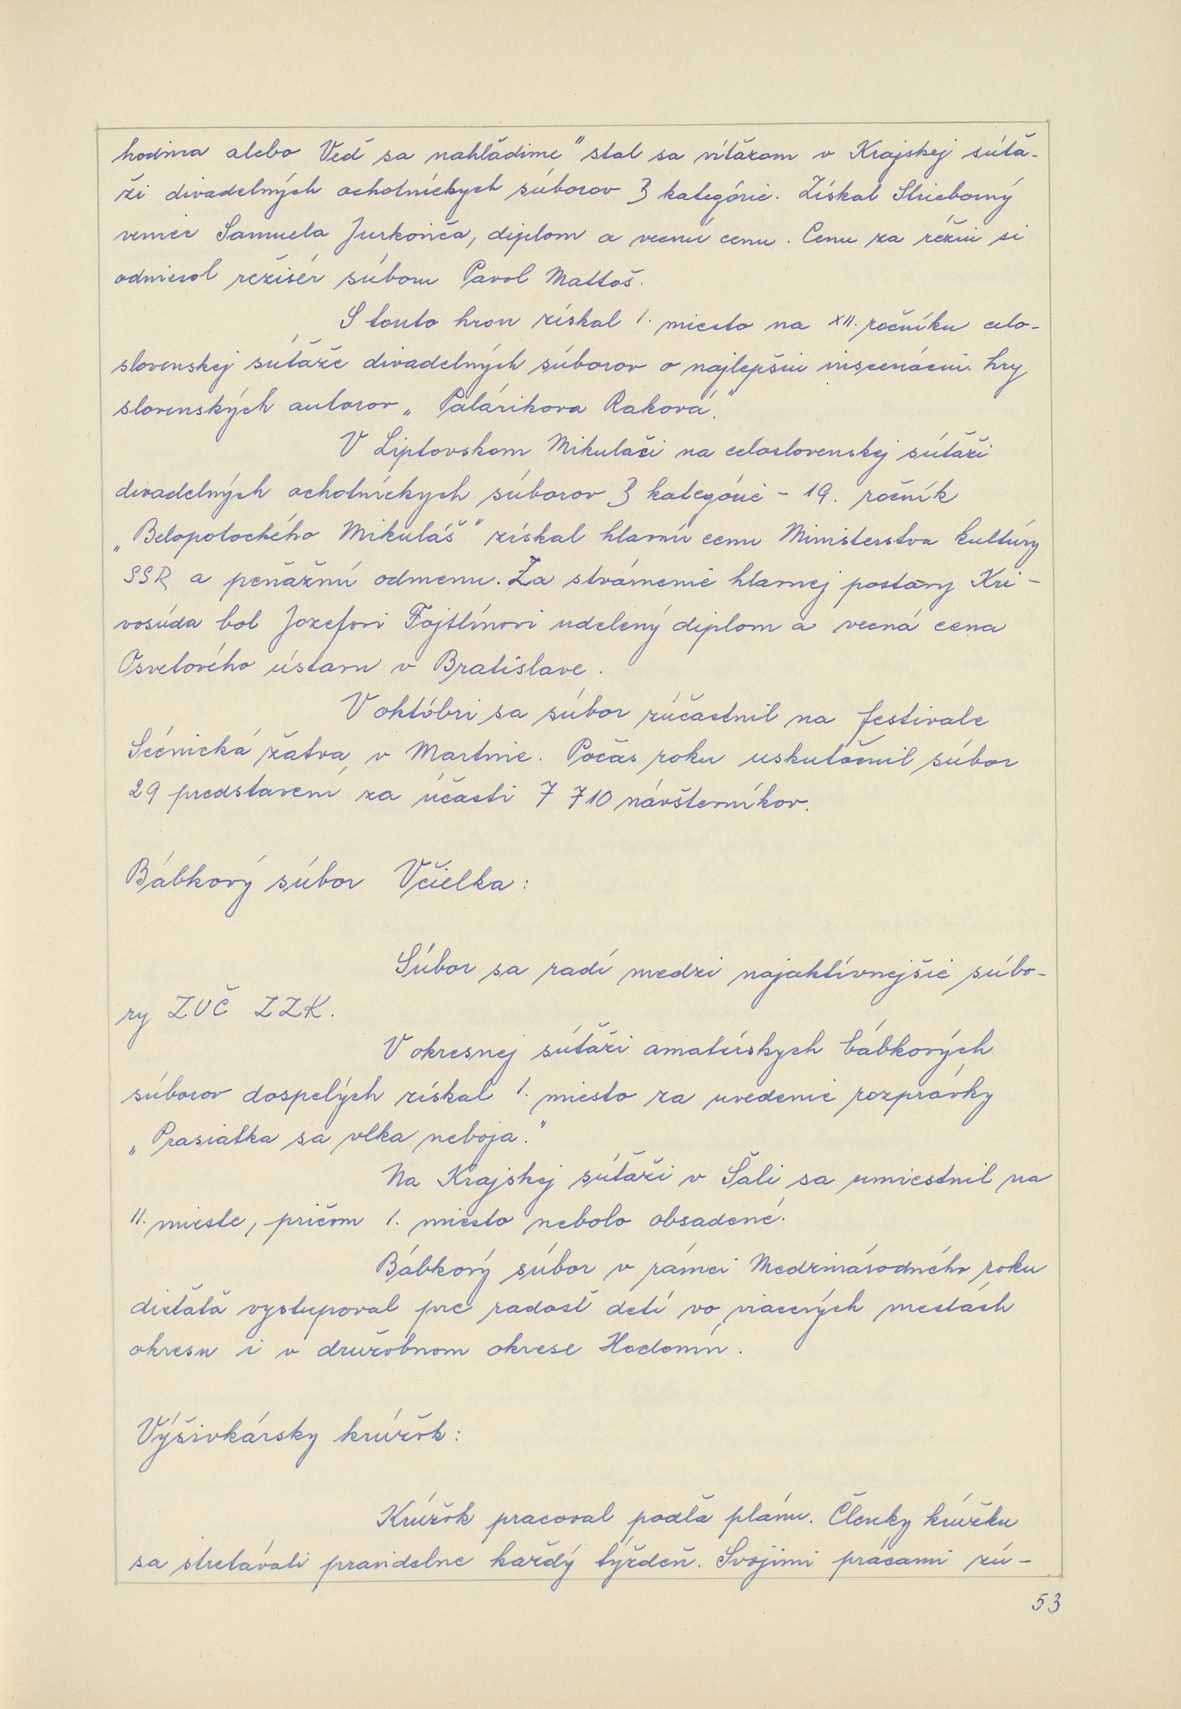 hodina alebo Veď sa nahľadíme" stal sa víťazom v Krajskej súťa-
ži divadelných ochotníckych súborov 3 kategórie. Získal Strieborný
veniec Samuela Jurkoviča, diplom a vecnú cenu. Cenu za réžiu si
odniesol režisér súboru Pavol Mattoš.
S touto hrou získal 1. miesto na XII. ročníku celo-
slovenskej súťaže divadelných súborov o najlepšiu inscenáciu hry
slovenských autorov „Palárikova Raková."
V Liptovskom Mikuláši na celoslovenskej súťaži
divadelných ochotníckych súborov 3 kategórie - 19. ročník
„Belopotockého Mikuláš" získal hlavnú cenu Ministerstva kultúry
SSR a peňažnú odmenu. Za stvárnenie hlavnej postavy Kri-
vosúda bol Jozefovi Fojtlínovi udelený diplom a vecná cena
Osvetového ústavu v Bratislave.
V októbri sa súbor zúčastnil na festivale
Scénická žatva v Martine. Počas roku uskutočnil súbor
29 predstavení za účasti 7 710 návštevníkov.
Bábkový súbor Včielka:
Súbor sa radí medzi najaktívnejšie súbo-
ry ZUČ ZZK.
V okresnej súťaži amatérskych bábkových
súborov dospelých získal 1. miesto za uvedenie rozprávky
„Prasiatka sa vlka neboja."
Na Krajskej súťaži v Šali sa umiestnil na
II. mieste, pričom 1. miesto nebolo obsadené.
Bábkový súbor v rámci Medzinárodného roku
dieťaťa vystupoval pre radosť detí vo viacerých mestách
okresu i v družobnom okrese Hodonín.
Výšivkársky krúžok:
Krúžok pracoval podľa plánu. Členky krúžku
sa stretávali pravidelne každý týždeň. Svojimi prácami zú-
53